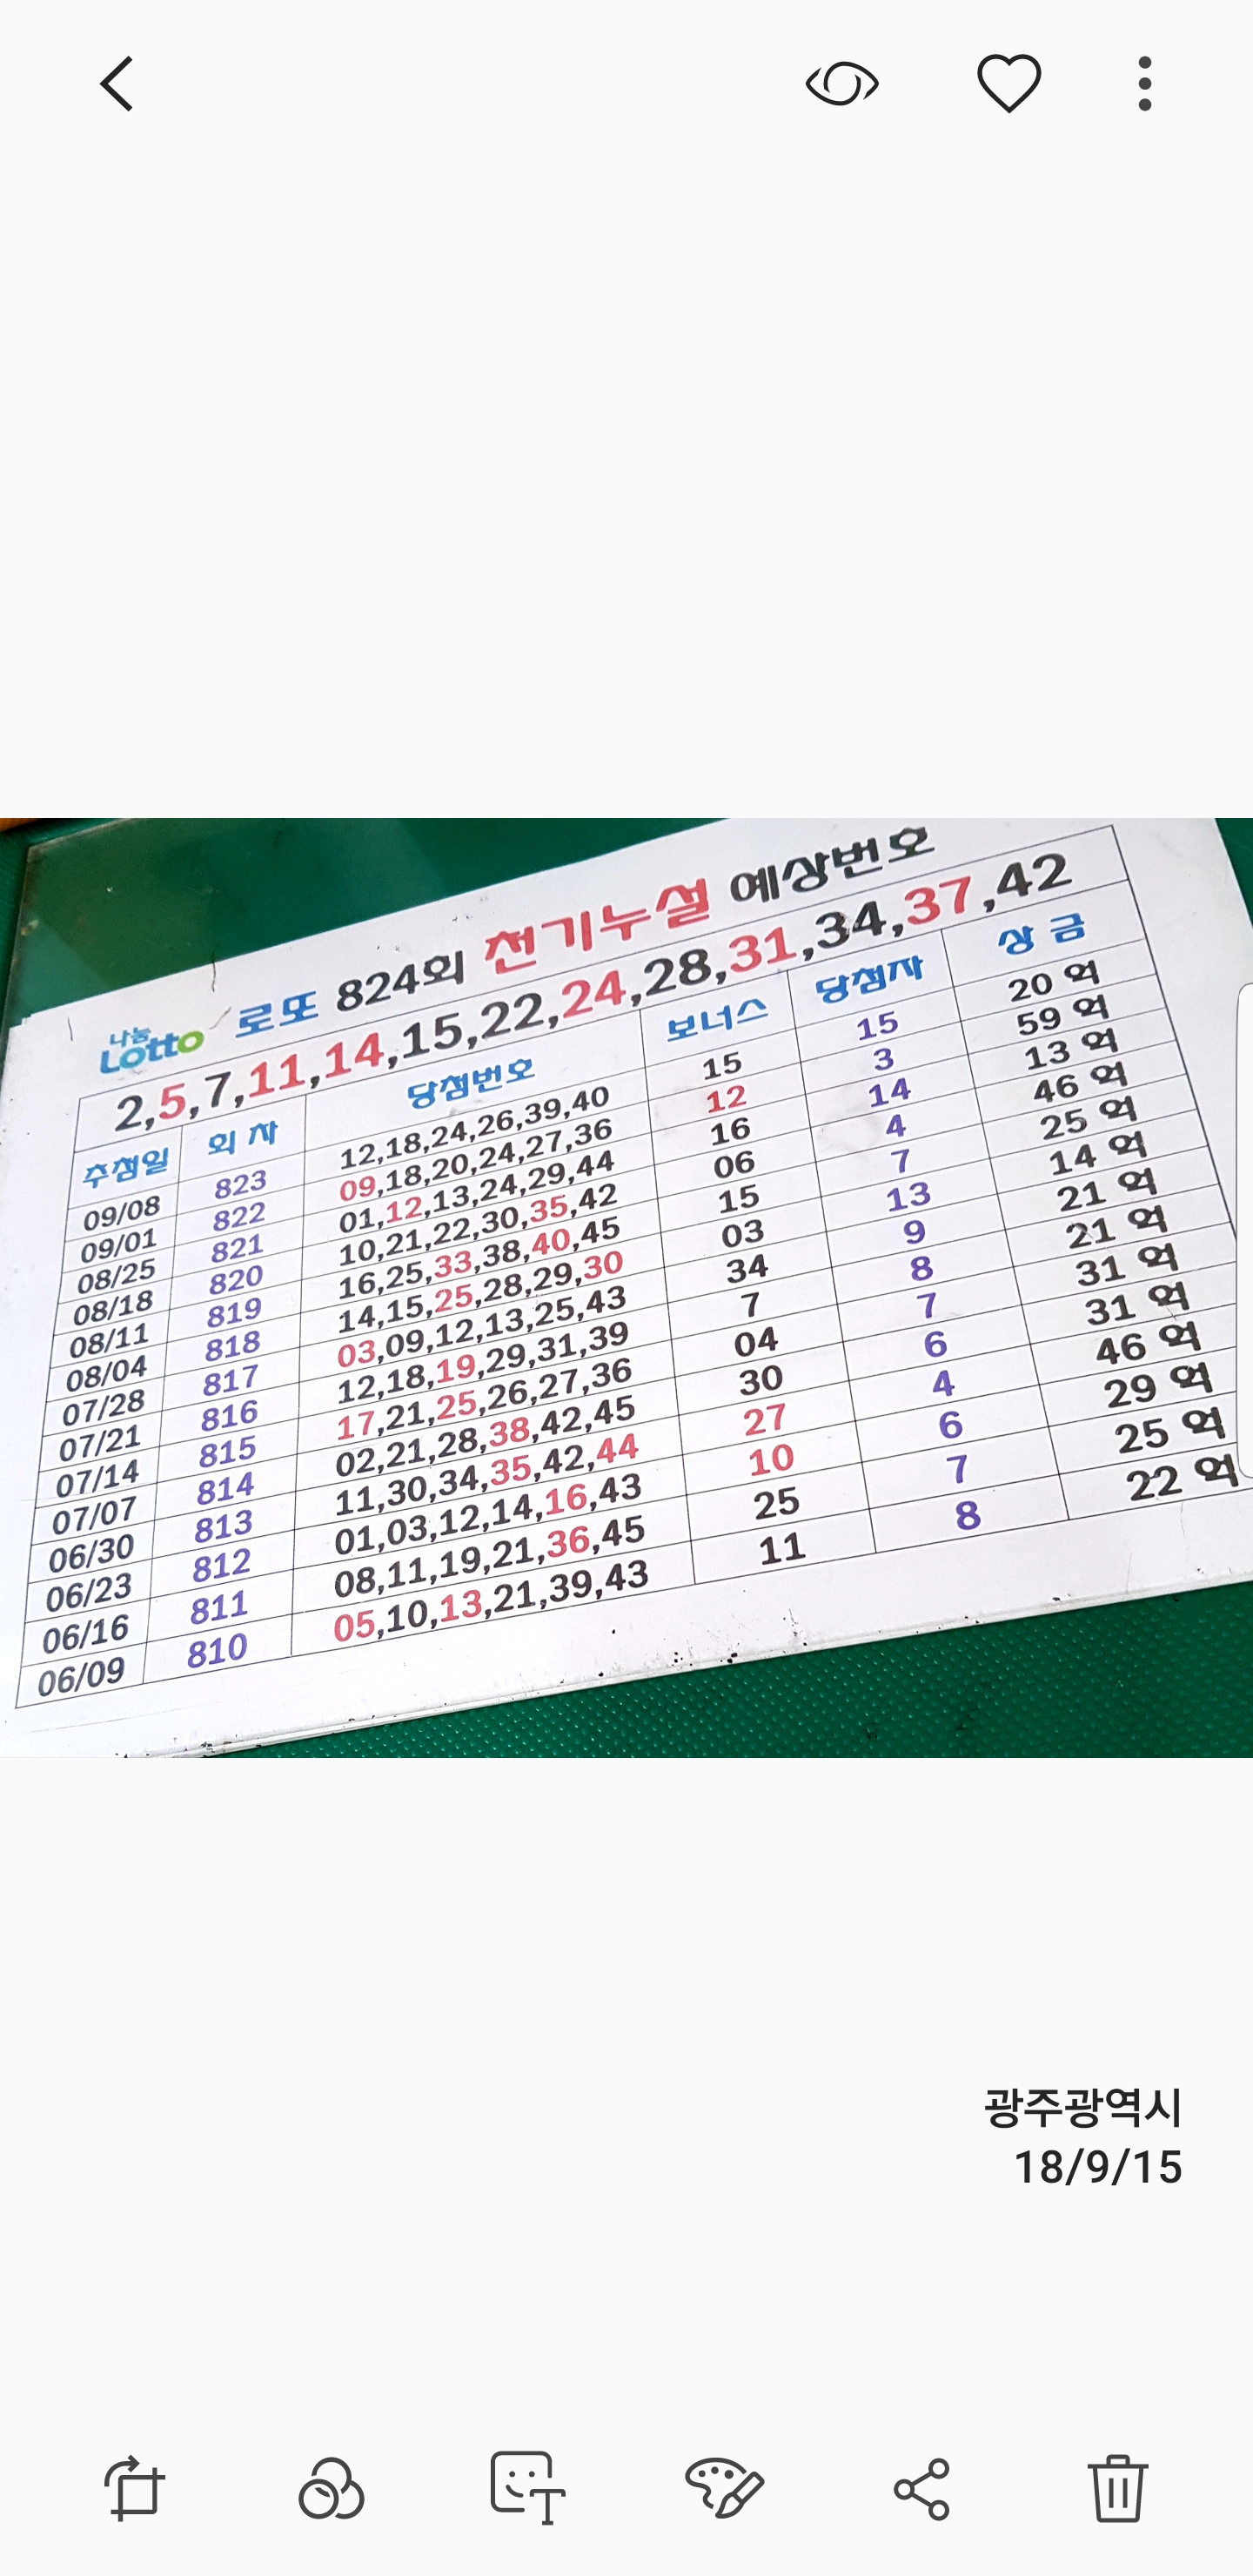 나눔 Lotto 로또 824회 천기누설 예상번호
2,5,7,11,14,15,22,24,28,31,34,37,42
추첨일 회 차 당첨번호 보너스 당첨자 상 금
09/08 823 12,18,24,26,39,40 15 15 20 억
09/01 822 09,18,20,24,27,36 12 3 59 억
08/25 821 01,12,13,24,29,44 16 14 13 억
08/18 820 10,21,22,30,35,42 06 4 46 억
08/11 819 16,25,33,38,40,45 15 7 25 억
08/04 818 14,15,25,28,29,30 03 13 14 억
07/28 817 03,09,12,13,25,43 34 9 21 억
07/21 816 12,18,19,29,31,39 7 8 21 억
07/14 815 17,21,25,26,27,36 04 7 31 억
07/07 814 02,21,28,38,42,45 30 6 31 억
06/30 813 11,30,34,35,42,44 27 4 46 억
06/23 812 01,03,12,14,16,43 10 6 29 억
06/16 811 08,11,19,21,36,45 25 7 25 억
06/09 810 05,10,13,21,39,43 11 8 22 억
광주광역시
18/9/15